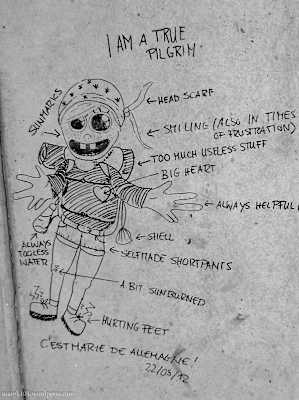 I AM A TRUE
PILGRIM
SUNMARKS
HEAD SCARF
SMILING (ALSO IN TIMES
OF FRUSTRATION)
TOO MUCH USELESS STUFF
BIG HEART
ALWAYS HELPFUL
SHELL
ALWAYS
TOO LESS
WATER
SELFMADE SHORTPANTS
A BIT SUNBURNED
HURTING FEET
C'EST MARIE DE ALLEMAGNE!
22/05/12